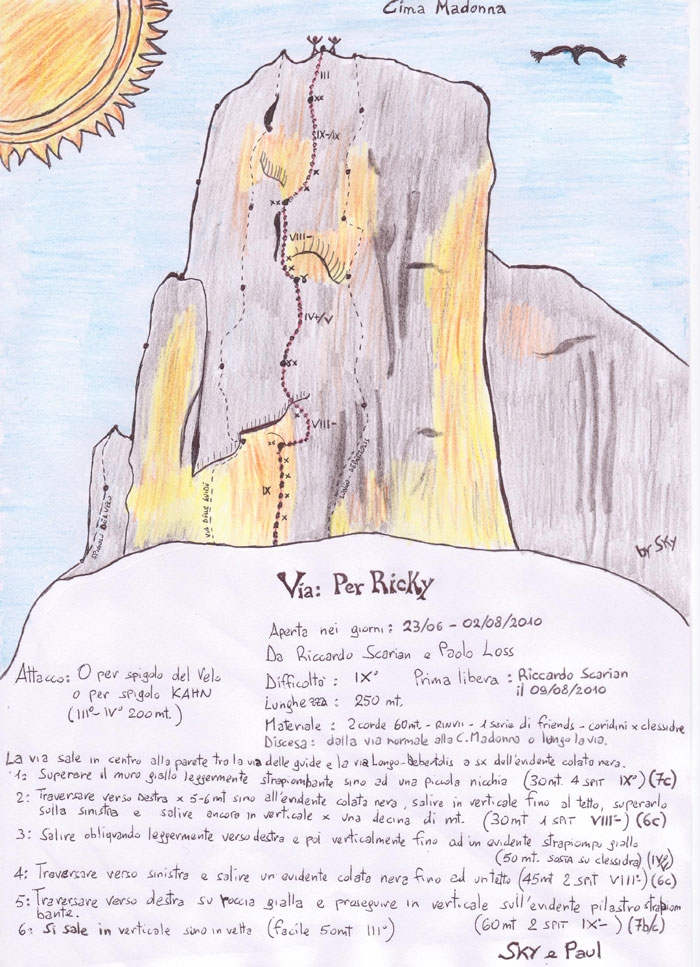 Cima Madonna
III
IX-/IX
VIII-
IV+/V
VIII-
IX
SPIGOLO DEL VELO
VIA DELLE GUIDE
LONGO-DEBERTOLIS
by Sky
Via: Per Ricky
Aperta nei giorni: 23/06 - 02/08/2010
Da Riccardo Scarian e Paolo Loss
Attacco: O per spigolo del Velo
o per spigolo KAHN
(III°-IV° 200mt.)
Difficoltà: IX° Prima libera: Riccardo Scarian
il 09/08/2010
Lunghezza: 250 mt.
Materiale: 2 corde 60mt. - RINVII - 1 serie di friends - cordini x clessidre
Discesa: dalla via normale alla C. Madonna o lungo la via.
La via sale in centro alla parete tra la via delle guide e la via Longo-Debertolis a sx dell'evidente colata nera.
1: Superare il muro giallo leggermente strapiombante sino ad una piccola nicchia (30mt. 4 SPIT IX°) (7c)
2: Traversare verso destra x 5-6 mt sino all'evidente colata nera, salire in verticale fino al tetto, superarlo
sulla sinistra e salire ancora in verticale x una decina di mt. (30mt 1 SPIT VIII-) (6c)
3: Salire obliquando leggermente verso destra e poi verticalmente fino ad un evidente strapiombo giallo
(50 mt. sosta su clessidra)
4: Traversare verso sinistra e salire un'evidente colata nera fino ad un tetto (45mt 2 SPIT VIII-) (6c)
5: Traversare verso destra su roccia gialla e proseguire in verticale sull'evidente pilastro strapiom
bante. (60mt 2 SPIT IX-) (7b/c)
6: Si sale in verticale sino in vetta (facile 50mt III°)
SKY e Paul